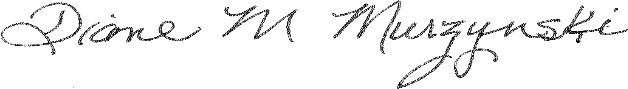 Diane M Murzynski